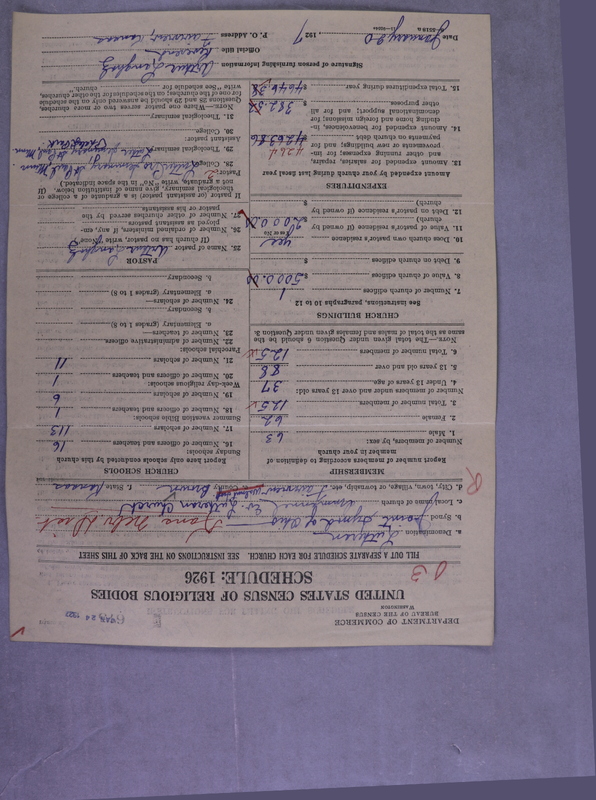 DEPARTMENT OF COMMERCE
BUREAU OF THE CENSUS
WASHINGTON
JAN 24 1927
UNITED STATES CENSUS OF RELIGIOUS BODIES
SCHEDULE: 1926
FILL OUT A SEPARATE SCHEDULE FOR EACH CHURCH. SEE INSTRUCTIONS ON THE BACK OF THIS SHEET
a. Denomination Lutheran
b. Synod Joint Synod of Ohio
c. Local name of church Immanuel Ev. Lutheran Church
d. City, town, village, or township, etc. Fairview County Brown State Kansas
MEMBERSHIP
Report number of members according to definition of
member in your church
Number of members, by sex:
1. Male 63
2. Female 62
3. Total number of members 125
Number of members under and over 13 years old:
4. Under 13 years of age 37
5. 13 years old and over 88
6. Total number of members 125
NOTE.—The total given under Question 6 should be the
same as the total of males and females given under Question 3.
CHURCH BUILDINGS
See instructions, paragraphs 10 to 12
7. Number of church edifices 1
8. Value of church edifices $ 5000.00
9. Debt on church edifices $
10. Does church own pastor's residence yes
(Yes or No)
11. Value of pastor's residence (if owned by
church) $ 2000.00
12. Debt on pastor's residence (if owned by
church) $
EXPENDITURES
Amount expended by your church during last fiscal year
13. Amount expended for salaries, repairs,
and other running expenses; for im-
provements or new buildings; and for
payments on church debt
14. Amount expended for benevolences, in-
cluding home and foreign missions; for
denominational support; and for all
other purposes $
15. Total expenditures during year $
CHURCH SCHOOLS
Report here only schools conducted by this church
Sunday schools:
16. Number of officers and teachers 16
17. Number of scholars 113
Summer vacation Bible schools:
18. Number of officers and teachers 1
19. Number of scholars 6
Week-day religious schools:
20. Number of officers and teachers 1
21. Number of scholars 11
Parochial schools:
22. Number of administrative officers
23. Number of teachers—
a. Elementary (grades 1 to 8)
b. Secondary
24. Number of scholars—
a. Elementary (grades 1 to 8)
b. Secondary
PASTOR
25. Name of pastor
(If church has no pastor, write "None")
26. Number of ordained ministers, if any, em-
ployed as assistant pastors
27. Number of other churches served by the
pastor or his assistants
If pastor (or assistant pastor) is a graduate of a college or
theological seminary, give name of institution below. (If
not a graduate, write "No" in the space indicated.)
Pastor:
28. College
29. Theological seminary
Assistant pastor:
30. College
31. Theological seminary
NOTE.—Where one pastor serves two or more churches,
Questions 28 and 29 should be answered only on the schedule
for one of the churches; on the schedules for the other churches,
write "See schedule for church."
Signature of person furnishing information
Official title Reverend
P. O. Address Fairview, Kansas
Date January 20 1927